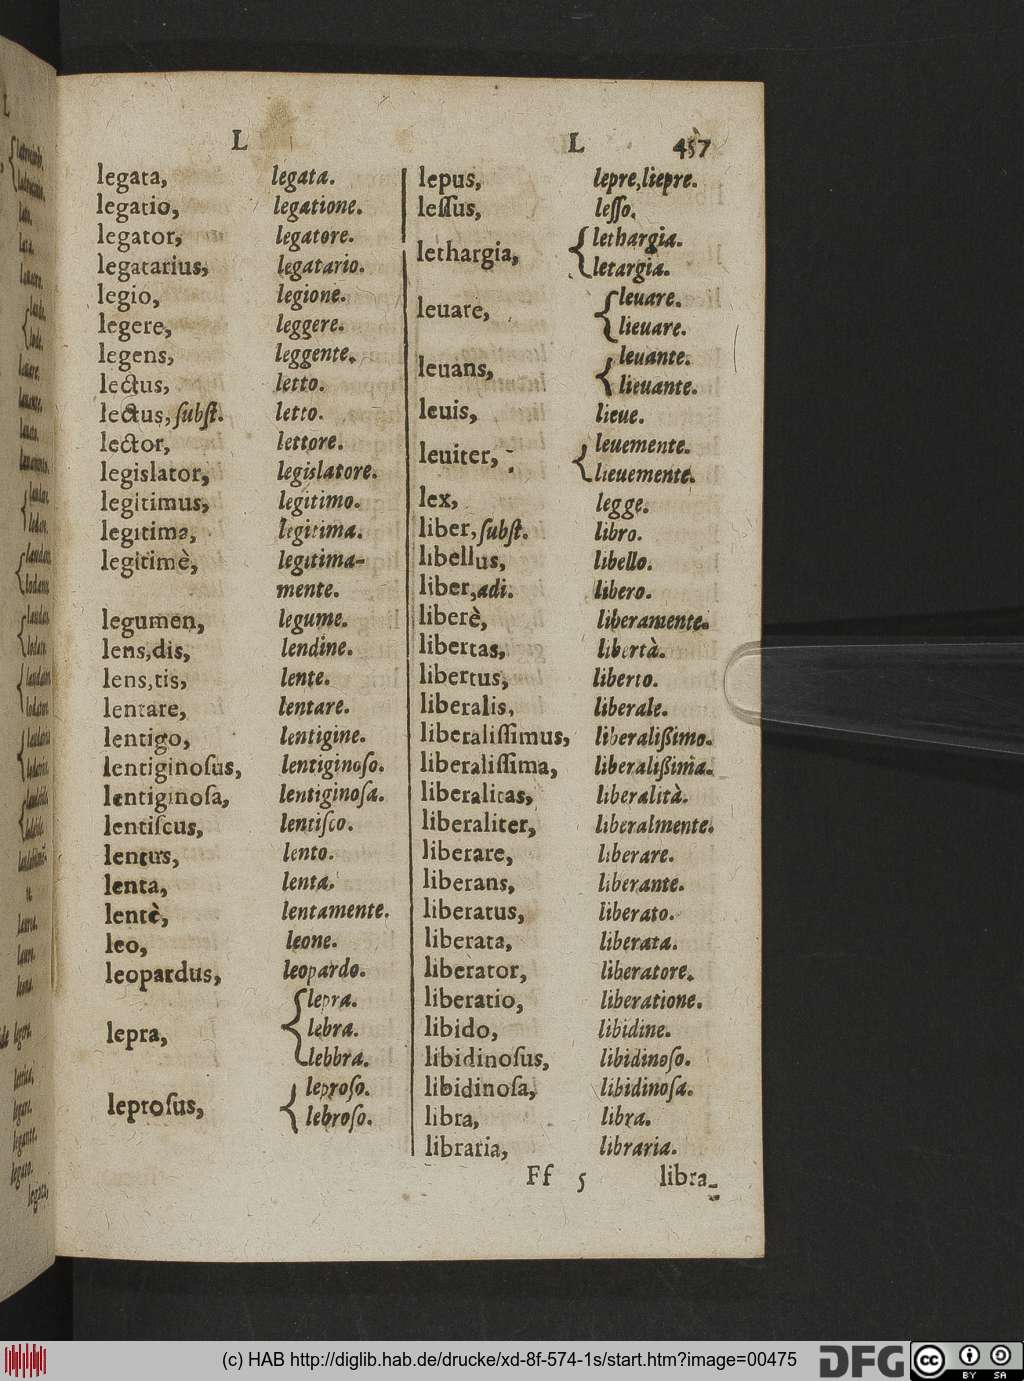 L L 457
legata, legata.
legatio, legatione.
legator, legatore.
legatarius, legatario.
legio, legione.
legere, leggere.
legens, leggente.
lectus, letto.
lectus, ſubſt. letto.
lector, lettore.
legislator, legislatore.
legitimus, legitimo.
legitima, legitima.
legitimè, legitima-
mente.
legumen, legume.
lens,dis, lendine.
lens,tis, lente.
lentare, lentare.
lentigo, lentigine.
lentiginoſus, lentiginoſo.
lentiginoſa, lentiginoſa.
lentiſcus, lentiſco.
lentus, lento.
lenta, lenta.
lentè, lentamente.
leo, leone.
leopardus, leopardo.
lepra, { lepra.
lebra.
lebbra.
leproſus, { leproſo.
lebroſo.
lepus, lepre,liepre.
leſſus, leſſo.
lethargia, { lethargia.
letargia.
leuare, { leuare.
lieuare.
leuans, { leuante.
lieuante.
leuis, lieue.
leuiter, { leuemente.
lieuemente.
lex, legge.
liber, ſubſt. libro.
libellus, libello.
liber, adi. libero.
liberè, liberamente.
libertas, libertà.
libertus, liberto.
liberalis, liberale.
liberaliſſimus, liberalißimo.
liberaliſſima, liberalißima.
liberalitas, liberalità.
liberaliter, liberalmente.
liberare, liberare.
liberans, liberante.
liberatus, liberato.
liberata, liberata.
liberator, liberatore.
liberatio, liberatione.
libido, libidine.
libidinoſus, libidinoſo.
libidinoſa, libidinoſa.
libra, libra.
libraria, libraria.
Ff 5 libra-
(c) HAB http://diglib.hab.de/drucke/xd-8f-574-1s/start.htm?image=00475 DFG cc BY SA